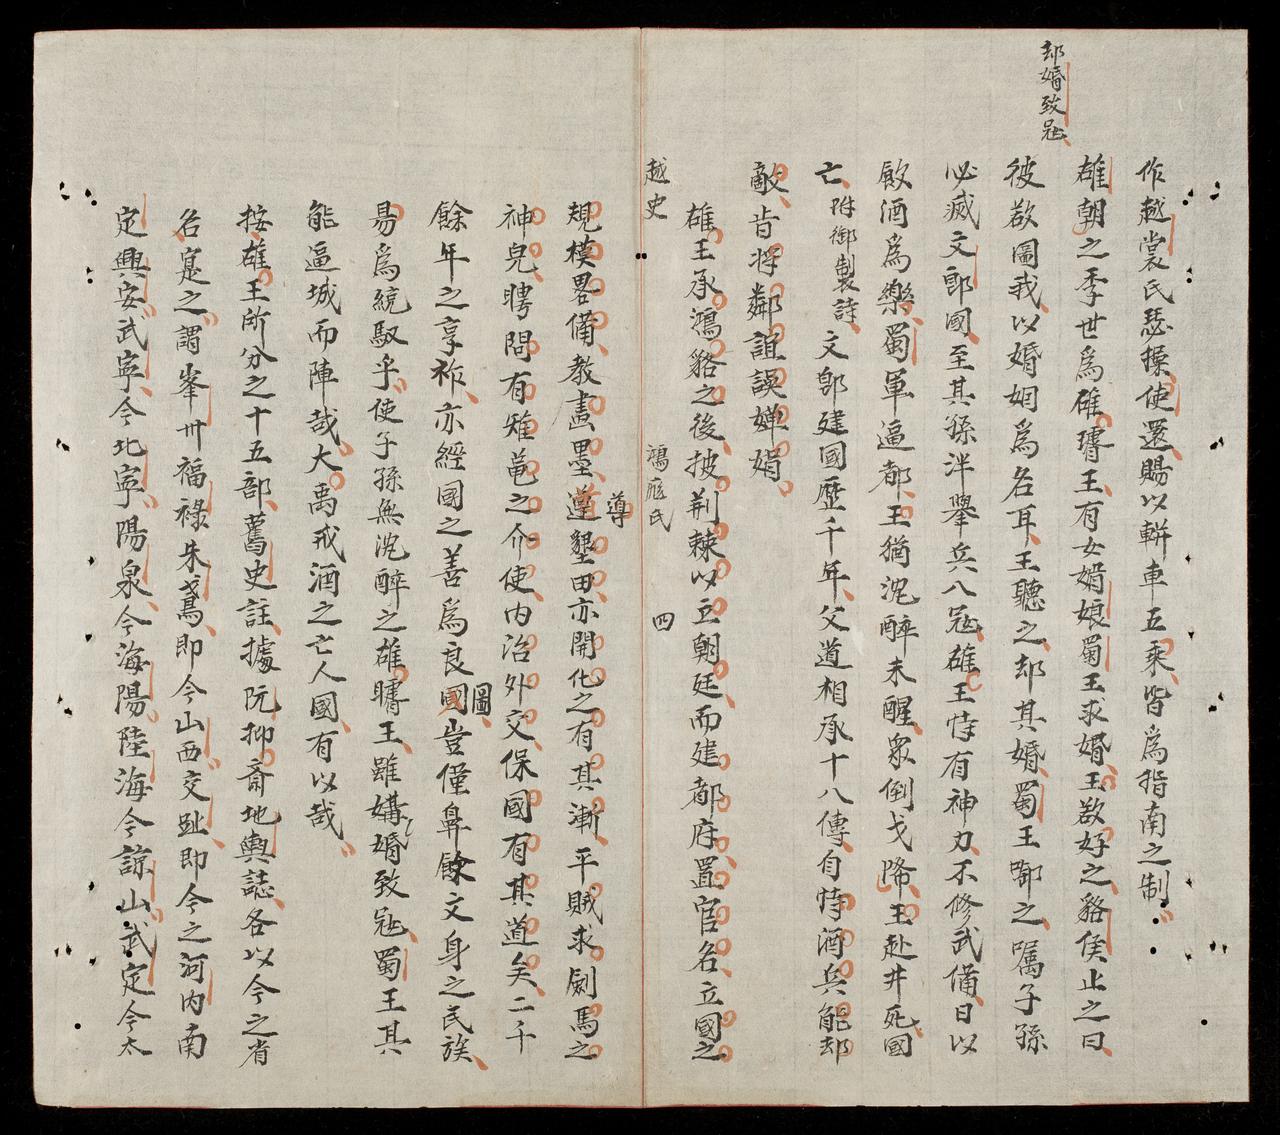 却婚致寇
作越裳氏瑟操使還賜以軿車五乘皆爲指南之制
雄朝之季世爲雄璿王有女媚娘蜀王求婚王欲好之貉侯止之曰
彼欲圖我以婚姻爲名耳王聽之却其婚蜀王啣之嘱子孫
必滅文郎國至其孫泮舉兵入寇雄王恃有神力不修武備日以
飲酒爲樂蜀軍逼都王猶沈醉未醒衆倒戈降王赴井死國
亡附御製詩文郎建國歷千年父道相承十八傳自恃酒兵能却
敵肯将鄰誼誤嬋娟
越史 鴻厖氏 四
雄王承鴻貉之後披荆棘以立朝廷而建都府置官名立國之
規模畧備教畫墨導墾田亦開化之有其漸平賊求劍馬之
神皃聘問有雉黽之介使内治外交保國有其道矣二千
餘年之享祚亦經國之善爲良圖豈僅鼻飲文身之民族
易爲統馭乎使子孫無沈醉之雄璿王雖媾婚致寇蜀王其
能逼城而陣哉大禹戒酒之亡人國有以哉
按雄王所分之十五部舊史註據阮抑齋地輿誌各以今之省
名寔之謂峯州福祿朱鳶即今山西交趾即今之河内南
定興安武寧今北寧陽泉今海陽陸海今諒山武定今太